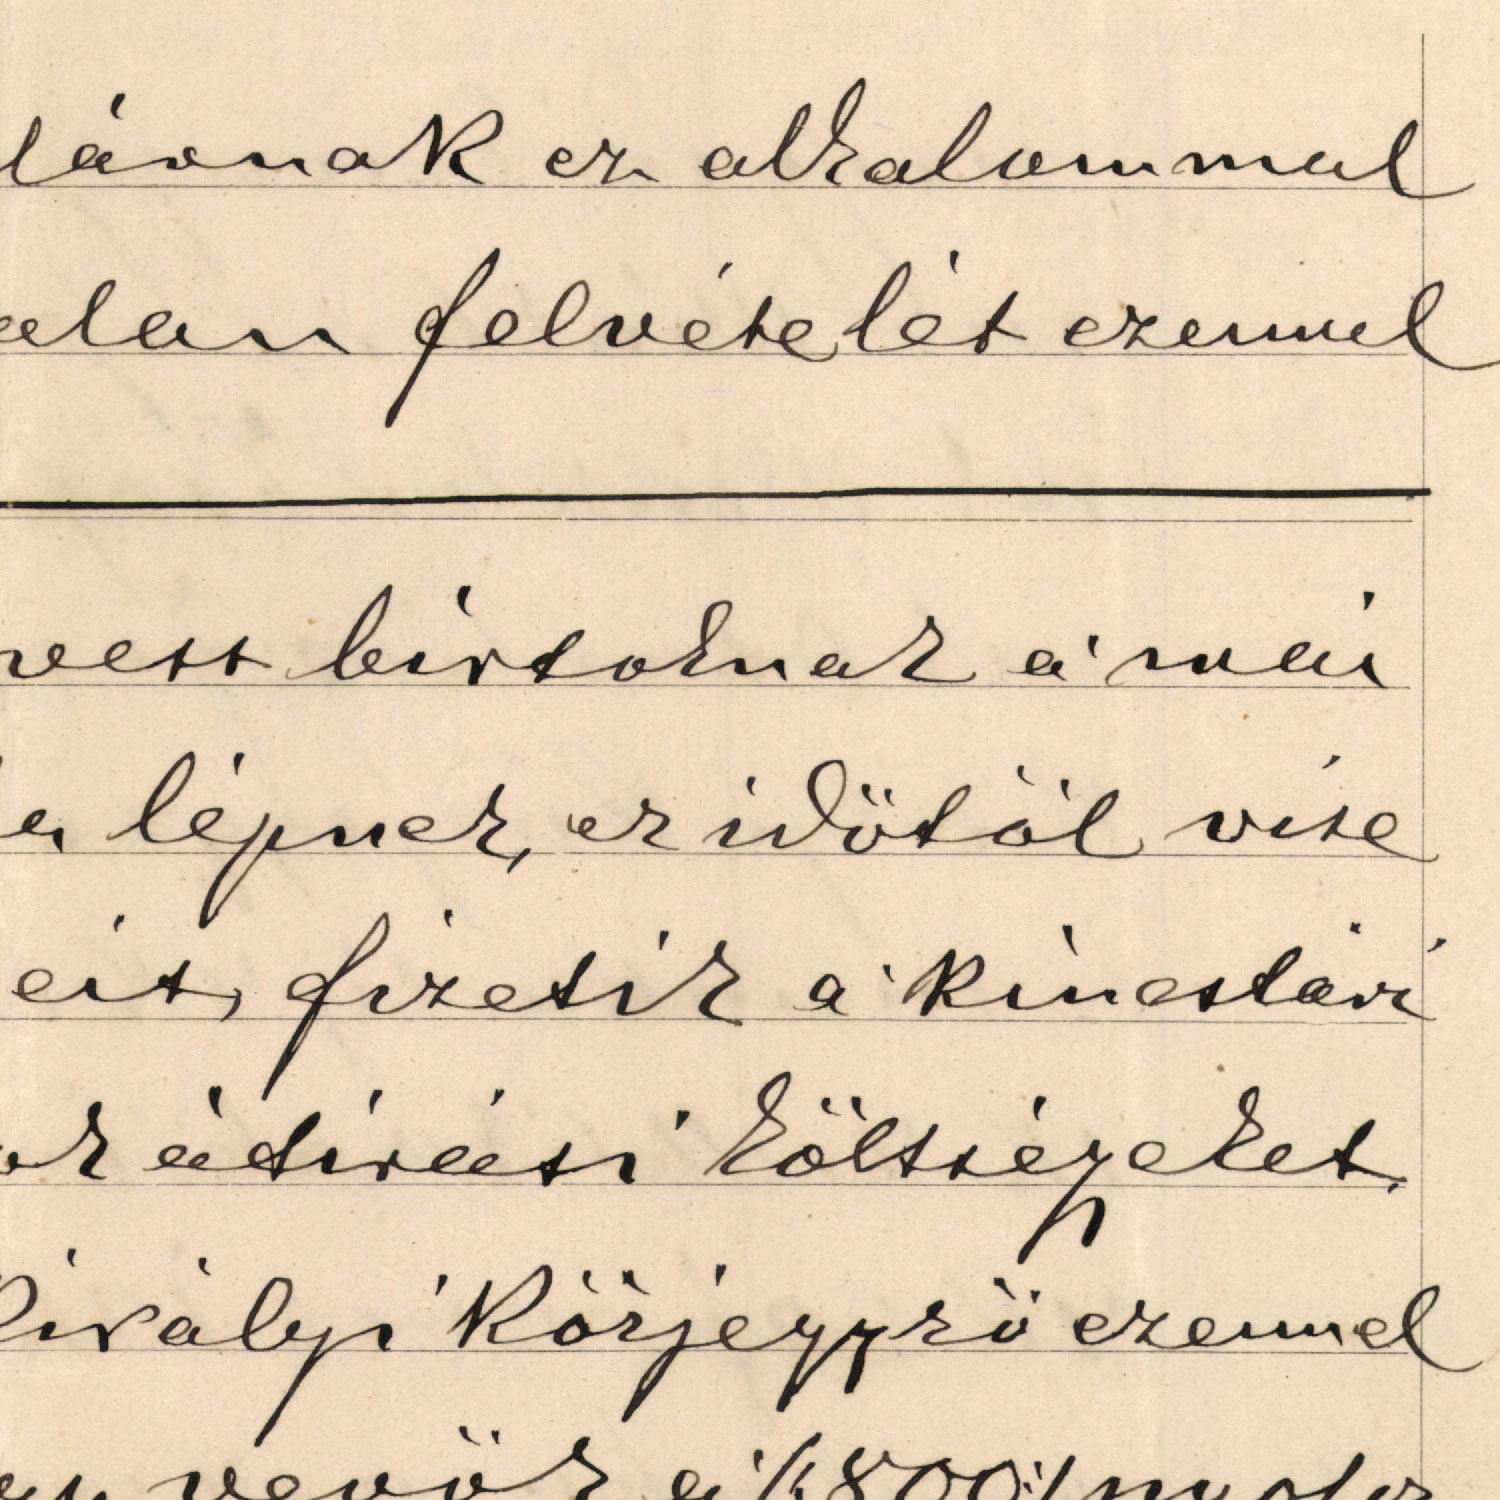 lásnak ez alkalommal
alan felvételét ezennel
vett birtoknak a mai
a lépnek, ez időtől vise
eit, fizetik a kincstári
ok átirási költségeket.
Királyi Körjegyző ezennel
vevök a /:800:/ nyolcz